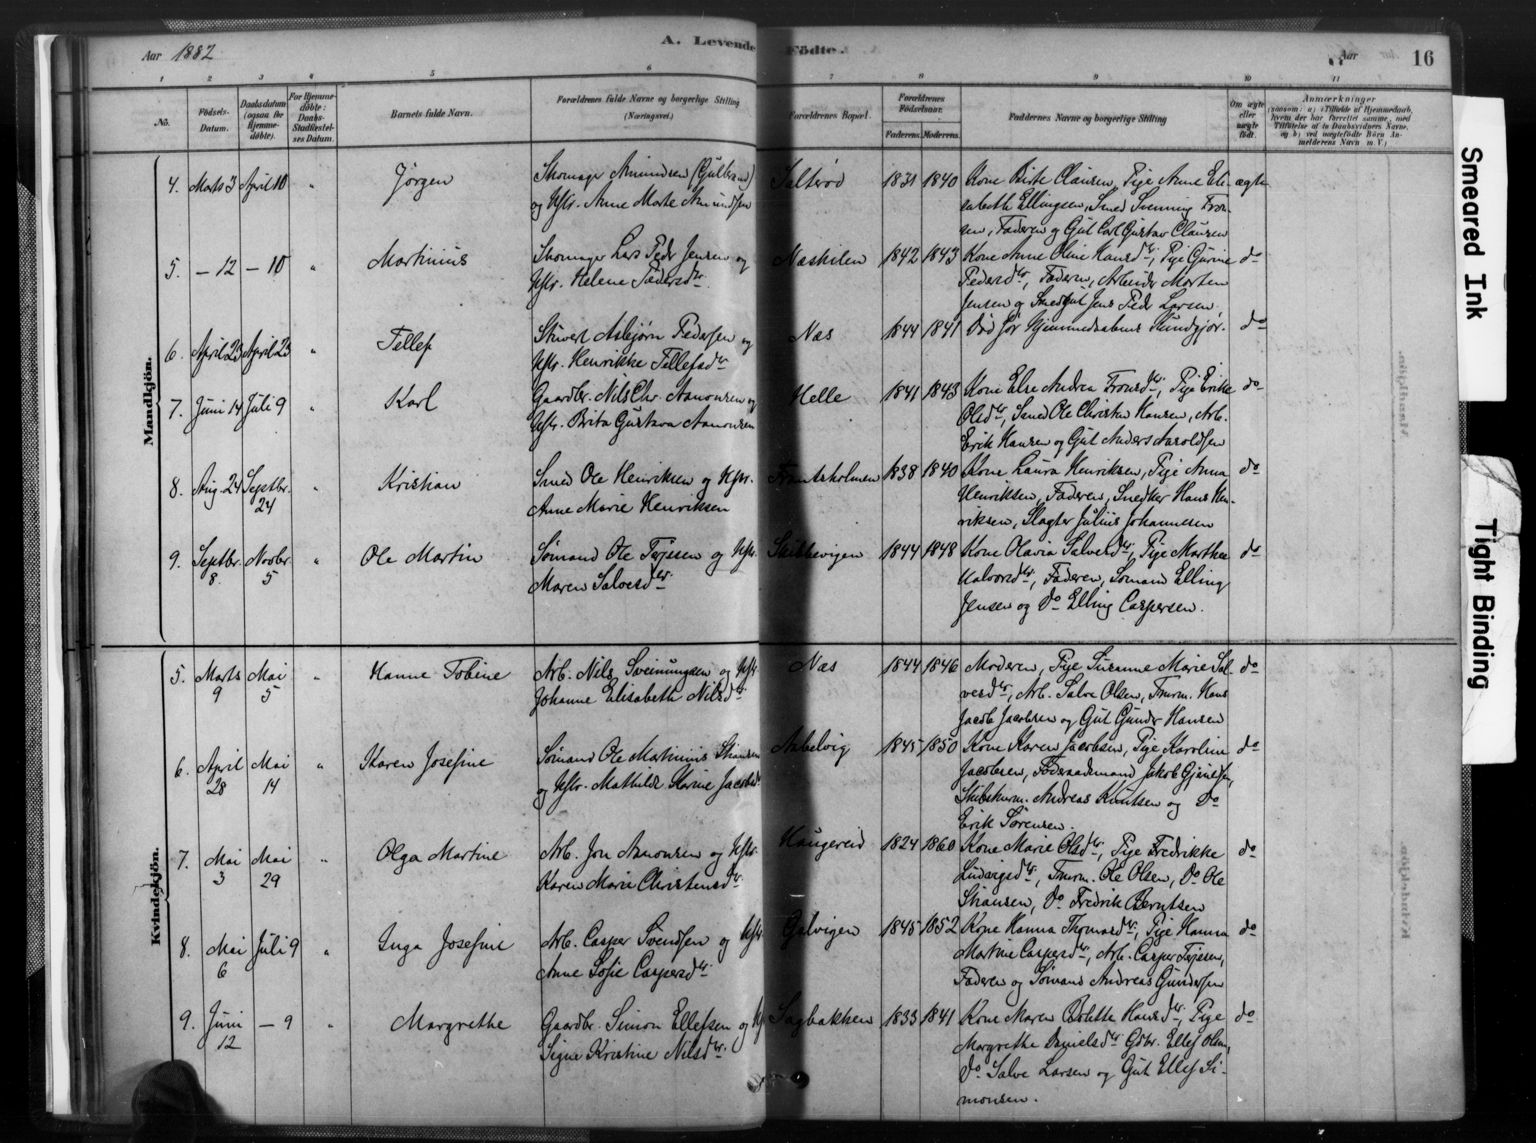 Aar 1882
A. Levende Födte.
Aar
16
1 2 3 4 5 6 7 8 9 10 11
No.
Födsels-Datum.
Daabsdatum (ogsaa for Hjemme-döbte).
For Hjemme-döbte: Daabs-Stadfæstel-ses Datum.
Barnets fulde Navn.
Forældrenes fulde Navne og borgerlige Stilling (Næringsvei.)
Forældrenes Bopæl.
Forældrenes Födselsaar.
Faderens. Moderens.
Faddernes Navne og borgerlige Stilling
Om ægte eller uægte födt.
Anmærkninger
(saasom: a) i Tilfælde af Hjemmedaab, hvem der har forrettet samme, med Tilføielse af to Daabsvidners Navne, og b) ved uægtefödte Börn Anmelderens Navn m. V.)
Mandkjön.
4. Marts 3 April 10 " Jörgen
Skomager Amundsen (Gulbrand)
og Hstr. Anne Marte Amundsen
Salterød 1831 1840
Kone Birte Clausen, Pige Anne Eli-
sabeth Ellingsen, Smed Svenning Tron-
sen, Faderen og Gut Carl Gustav Clausen
ægte
5. – 12 – 10 " Martinius
Skomager Lars Peder Jensen og
Hstr. Helene Pedersdtr.
Næskilen 1842 1843
Kone Anne Oline Hansdtr, Pige Gurine
Pedersdtr, Faderen, Arbeider Morten
Jensen og Smedgut Jens Peder Larsen.
do
6. April 23 April 23 " Tellef
Stuvert Asbjørn Pedersen og
Hstr. Henrikke Tellefsdtr
Næs 1844 1841
Død før Hjemmedaabens Kundgjør.
do
7. Juni 14 Juli 9 " Karl
Gaardbr. Nils Chr. Aanonsen og
Hstr. Brita Gustava Aanonsen
Helle 1841 1843
Kone Else Andrea Tronsdtr, Pige Erikke
Olsdtr, Smed Ole Christen Hansen, Arb.
Erik Hansen og Gut Anders Aaroldsen
do
8. Aug. 24 Septbr. 24 " Kristian
Smed Ole Henriksen og Hstr.
Anne Marie Henriksen
Frantsholmen 1838 1840
Kone Laura Henriksen, Pige Anna
Henriksen, Faderen, Snedker Hans Hen-
riksen, Slagter Julius Johannesen
do
9. Septbr. 8 Novbr 5 " Ole Martin
Sømand Ole Terjesen og Hstr
Maren Salvesdtr
Skibbevigen 1844 1848
Kone Olavia Salvesdtr, Pige Marthea
Halvorsdtr, Faderen, Sømand Elling
Jensen og do Elling Caspersen.
do
Kvindekjön.
5. Marts 9 Mai 5 " Hanne Tobine
Arb. Nils Sveinungsen og Hstr
Johanne Elisabeth Nilsdtr
Næs 1844 1846
Moderen, Pige Susanne Marie Sal-
vesdtr, Arb. Salve Olsen, Tmrm. Hans
Jacob Jacobsen og Gut Gunder Hansen
do
6. April 28 Mai 14 " Karen Josefine
Sømand Ole Martinius
og Hstr. Mathilde Karine Jacobsdtr
Asbelvig 1845 1850
Kone Karen Jacobsen, Pige Karoline
Jacobsen, Føderaadsmand Jakob
Skibstmrm. Andreas Knutsen og do
Erik Sørensen.
do
7. Mai 3 Mai 29 " Olga Martine
Arb. Jon Aanonsen og Hstr.
Karen Marie Christensdtr
Haugereid 1824 1860
Kone Marie Olsdtr, Pige Fredrikke
Ludvigsdtr, Tmrm. Ole Olsen, do Ole
do Fredrik Berntsen
do
8. Mai 6 Juli 9 " Inga Josefine
Arb. Casper Svendsen og Hstr
Anne Sofie Caspersdtr.
Gjelvigen 1845 1852
Kone Hanna Thomasdtr, Pige Hanna
Martine Caspersdtr, Arb. Casper Terjesen,
Faderen og Sømand Andreas Gundersen
do
9. Juni 12 – 9 " Margrethe
Gaardbr. Simon Ellefsen og H
Signe Kristine Nilsdtr.
Sagbakken 1833 1841
Kone Maren Bolette Hansdtr, Pige
Margrethe Danielsdtr Gdbr. Ellef Olsen,
do Salve Larsen og Gut Ellef Si-
monsen.
do
Smeared Ink
Tight Binding